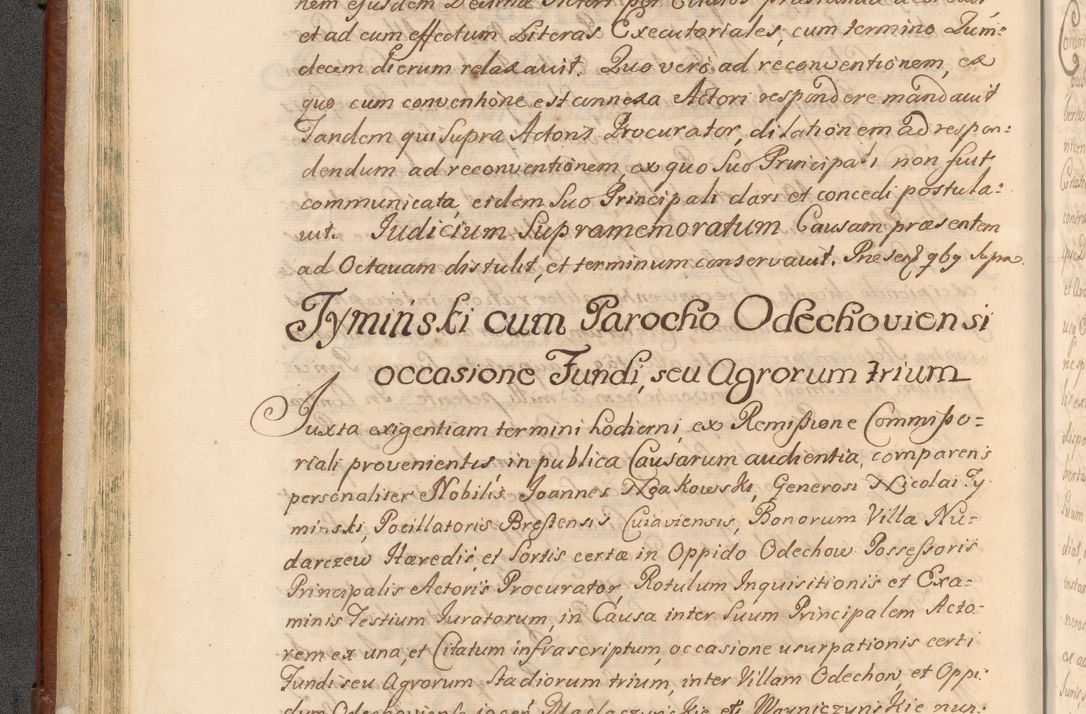 nem ejusdem Decimæ Actori per Citatos
et ad eum effectum Literas Executoriales, cum termino Quin=
decim dierum relaxavit. Quo verò ad reconventionem, ex
quo cum conventione est annexa Actori respondere mandavit
Tandem qui supra Actoris Procurator, dilationem ad respon:
dendum ad reconventionem, ex quo suo Principali non fuit
communicata, eidem suo Principali dari et concedi postula:
vit. Iudicium Supramemoratum Causam præsentem
ad Octavam distulit, et terminum conservavit. Præsent qbg supra.
Tymiński cum Parocho Odechoviensi
occasione Fundi, seu Agrorum trium
Iuxta exigentiam termini hodierni, ex Remissione Commisso=
riali provenientis in publica Causarum audientia, comparens
personaliter Nobilis Joannes Makowski, Generosi Nicolai Ty
miński, Pocillatoris Brestensis Cuiaviensis, Bonorum Villæ Nu=
darczew Hæredis, et Sortis certæ in Oppido Odechow Possessoris
Principalis Actoris Procurator, Rotulum Inquisitionis et Exa=
minis Testium Iuratorum, in Causa inter suum Principalem Acto:
rem ex una, et Citatum infrascriptum, occasione usurpationis certi
Fundi seu Agrorum Stadiorum trium, inter Villam Odechow, et Oppi:
dum Odechoviense jacen